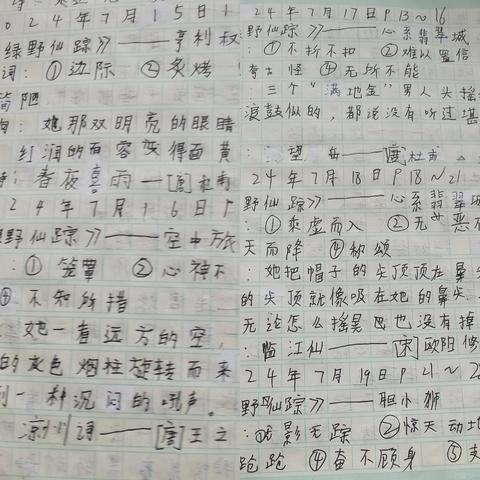 024年7月15日
绿野仙踪》——亨利权
词：①边际 ②炙烤
简陋
句：她那双明亮的眼睛
红润的面容变得面黄
春夜喜雨——[唐]杜甫
24年7月16日P
野仙踪》——空中旅
：①笼罩 ②心神不
④不知所措
她一看远方的空，
的灰色烟柱旋转而来
到一种沉闷的吼声。
凉州词——[唐]王之
24年7月17日P13~16
野仙踪》——心系翡翠城
：①不折不扣 ②难以置信
奇古怪 ④无所不能
：三个"满地金"男人头摇
浪鼓似的，都说没有听过堪
：望岳——[唐]杜甫
24年7月18日P18~21
野仙踪》——心系翡翠城
：①乘虚而入 ②无 恶不
天而降 ④称颂
：她把帽子的尖顶顶在鼻
的尖顶就像吸在她的鼻尖
无论怎么摇晃 也没有掉
：临江仙——[宋]欧阳修
24年7月19日P21~2
野仙踪》——胆小狮
：①无影无踪 ②惊天动地
跄跄 ④奋不顾身 ⑤支